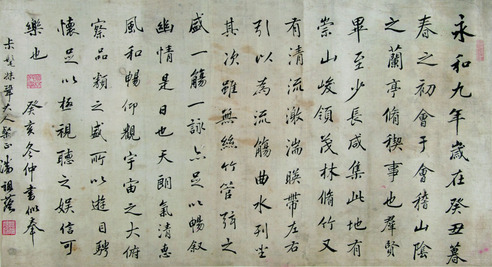 永和九年歲在癸丑暮
春之初會于會稽山陰
之蘭亭脩稧事也羣賢
畢至少長咸集此地有
崇山峻領茂林脩竹又
有清流激湍暎帶左右
引以為流觴曲水列坐
其次雖無絲竹管弦之
盛一觴一詠亦足以暢叙
幽情是日也天朗氣清惠
風和暢仰觀宇宙之大俯
察品類之盛所以遊目騁
懷足以極視聽之娛信可
樂也 癸亥冬仲書似奉
大人粲正 潘祖蔭